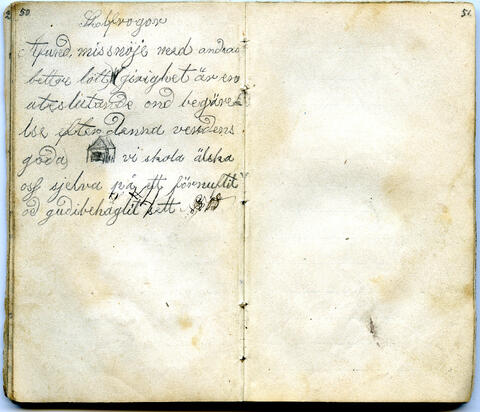 50
Skolfrogor
Afund, missnöje med andras
bettre lott, girighet är en
uteslutande ond begäre-
lse efter denna verldens
goda, vi skola älska
oss sjelva på ett förnuftit
od gudibehaglit sett
51